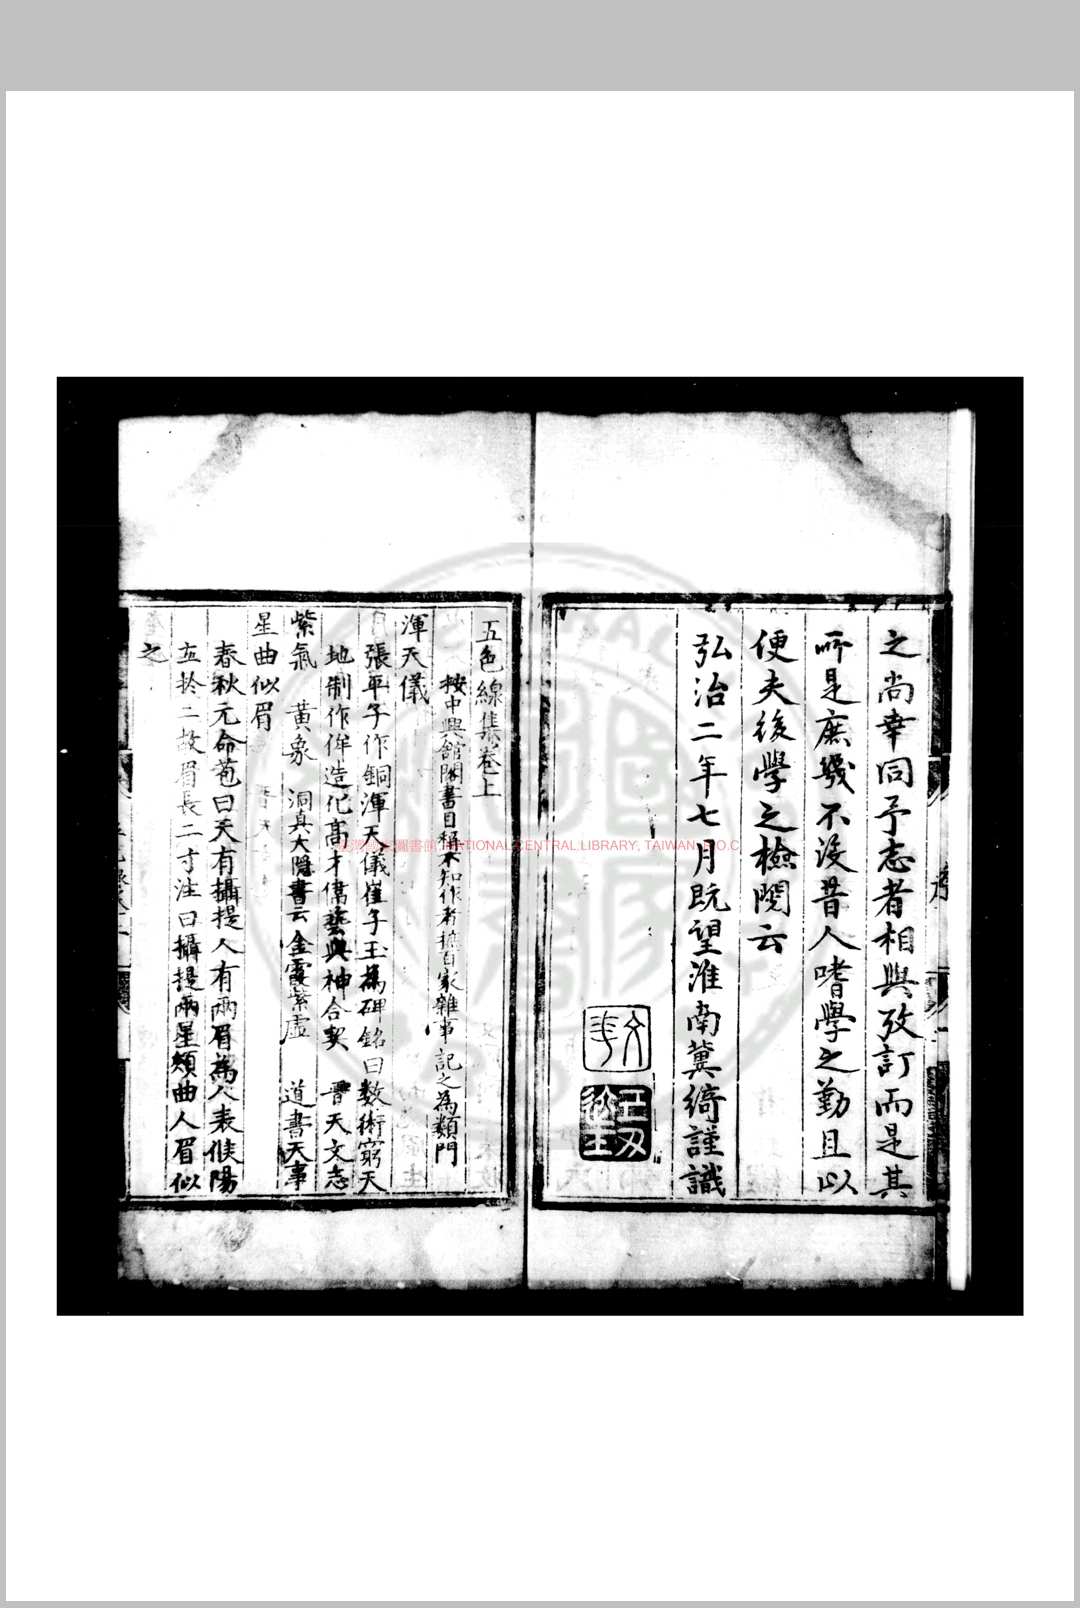 之尚幸同予志者相與攷訂而是其
所是庶幾不没昔人嗜學之勤且以
便夫後學之檢閱云
弘治二年七月既望淮南冀綺謹識
五色線集卷上
按中興館閣書目稱不知作者摭百家雜事記之為類門
渾天儀
張平子作銅渾天儀崔子玉為碑銘曰數術窮天
地制作侔造化高才偉藝與神合契 晉天文志
紫氣 黄象 洞真大隱書云金霞紫虛 道書天事
星曲似眉
春秋元命苞曰天有攝提人有兩眉為人表候陽
立於二故眉長二寸注曰攝提兩星頬曲人眉似
之
NATIONAL CENTRAL LIBRARY, TAIWAN, R.O.C